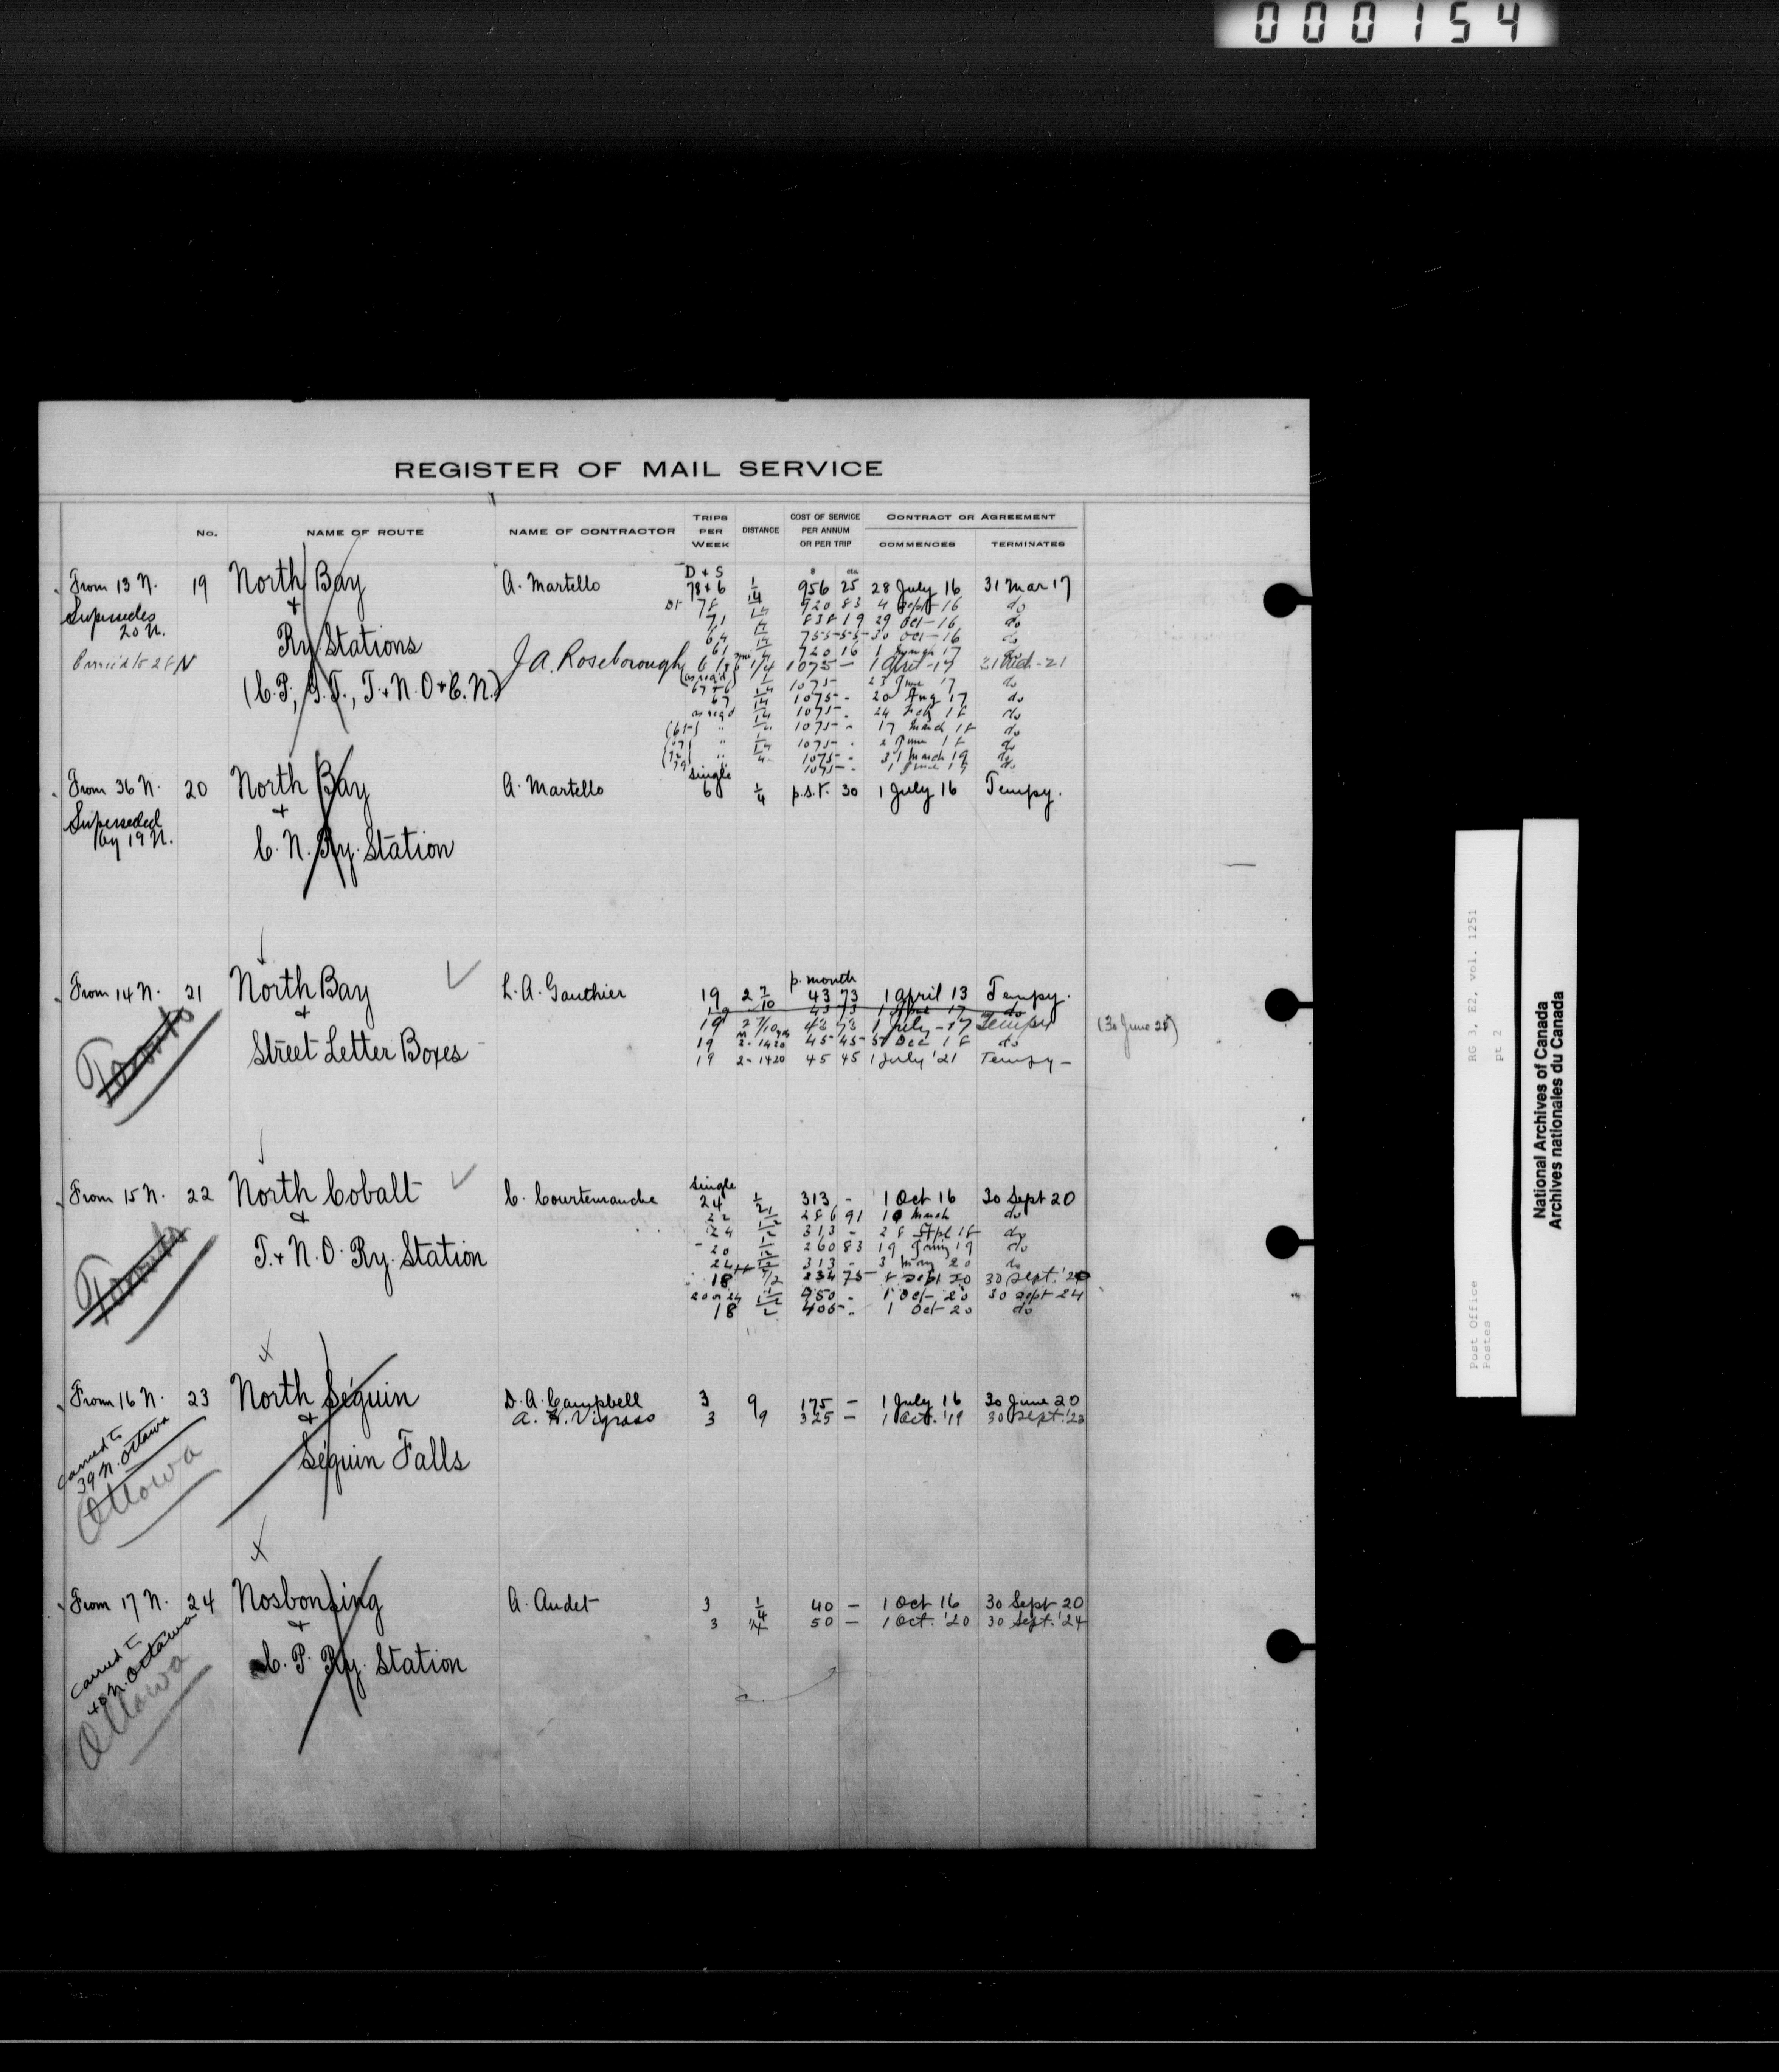 000154
REGISTER OF MAIL SERVICE
No. NAME OF ROUTE NAME OF CONTRACTOR TRIPS PER WEEK DISTANCE COST OF SERVICE PER ANNUM OR PER TRIP CONTRACT OR AGREEMENT COMMENCES TERMINATES
D + S $ cts
From 13 N. 19 North Bay A. Martello 78+6 1/4 956 25 28 July 16 31 Mar 17
Supersedes + 78 1/4 920 83 4 Sept 16 do
20 N. 71 1/4 838 19 29 Oct 16 do
Ry. Stations 64 1/4 755 55 30 Oct 16 do
61 1/4 720 16 17 do
Carried to 28 N J A. Roseborough 1/4 1075 — 1 April 17 31 Mch 21
(C.P., G.T., T. + N.O + C.N.) (as req'd) 1075 - 23 June 17 do
67 1/4 1075 - 20 Aug 17 do
as reqd 1/4 1075 - 24 Feb 18 do
(65) " 1/4 1075 - 17 March 18 do
" 1/4 1075 - 2 June 18 do
" 1075 - 31 March 19 do
79 1075 - 1 June 19 do
single
From 36 N. 20 North Bay A. Martello 6 1/4 p.s.t. 30 1 July 16 Tempy.
Superseded +
by 19 N. C. N. Ry. Station
p. month
From 14 N. 21 North Bay L. A. Gauthier 19 2 7/10 43 73 1 April 13 Tempy.
+ 19 43 73 1 April 17 do
19 2 7/10 43 73 1 July - 17 Tempy (30 June 25)
Toronto Street Letter Boxes 19 2 - 1420 45 45 31 Dec 18 do
19 2 - 1420 45 45 1 July '21 Tempy -
single
From 15 N. 22 North Cobalt C. Courtemanche 24 1/2 313 - 1 Oct 16 30 Sept 20
+ 22 1/2 286 91 March do
24 1/2 313 - 28 Sept 18 do
T. + N. O. Ry. Station 20 1/2 260 83 19 Jany 19 do
Toronto 24 1/2 313 - 3 May 20 do
18 1/2 234 75 8 Sept 20 30 Sept. '20
20 or 24 1/2 - 1 Oct - 20 30 Sept 24
18 1/2 405 - 1 Oct 20 do
From 16 N. 23 North Séguin D. A. Campbell 3 9 175 — 1 July 16 30 June 20
+ A. H. Vigrass 3 9 325 — 1 Oct. '19 30 Sept. '23
Carried to
39 N. Ottawa Séguin Falls
Ottawa
From 17 N. 24 Nosbonsing A. Audet 3 1/4 40 — 1 Oct 16 30 Sept 20
+ 3 1/4 50 — 1 Oct. '20 30 Sept. '24
Carried to
40 N. Ottawa C. P. Ry. Station
Ottawa
RG 3, E2, vol. 1251
pt 2
Post Office
Postes
National Archives of Canada
Archives nationales du Canada